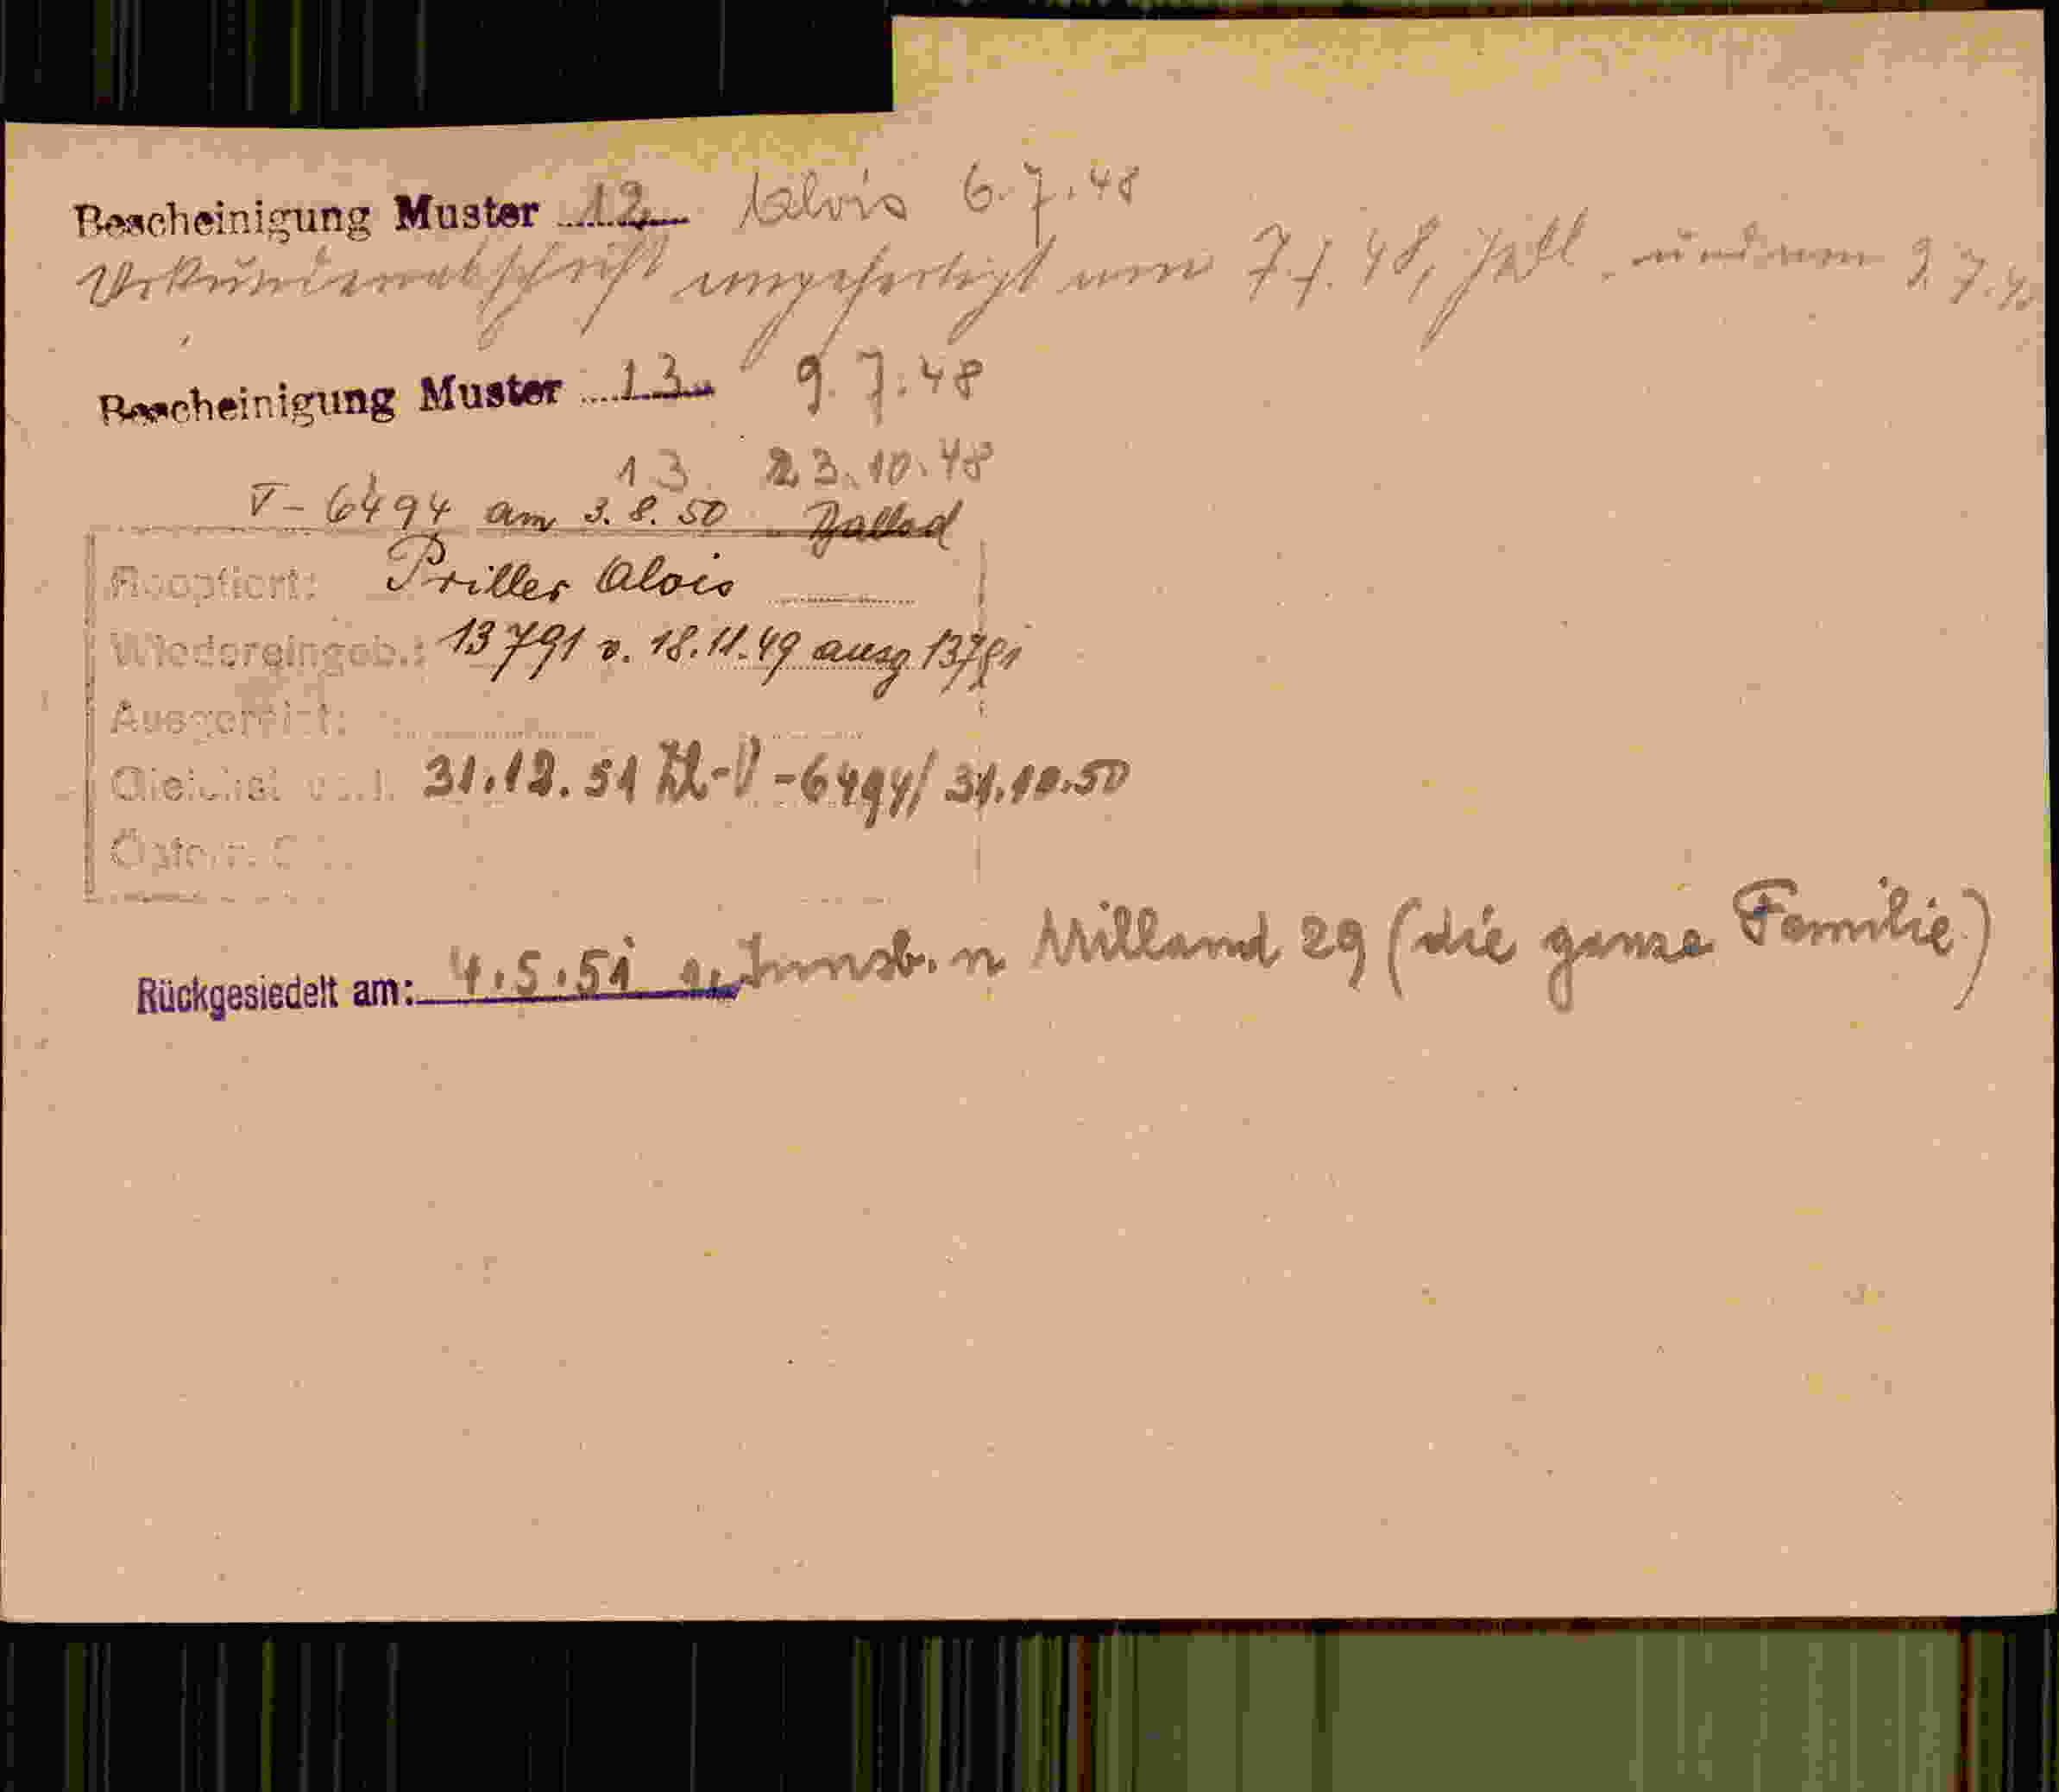 Bescheinigung Muster 12 Alois 6.7.48
Urkundenabschrift angefertigt am 7.7.48, und am 9.7.4
Bescheinigung Muster 13 9.7.48
13. 23.10.48
V-6494 am 3.8.50
Reoptiert: Priller Alois
Wiedereingeb.: 13791 v. 18.11.49 ausg 13791
Ausgereist:
31.12.51 Zl-V-6494/ 31.10.50
Rückgesiedelt am: 4.5.51 v. Innsb. n Milland 29 (die ganze Familie)